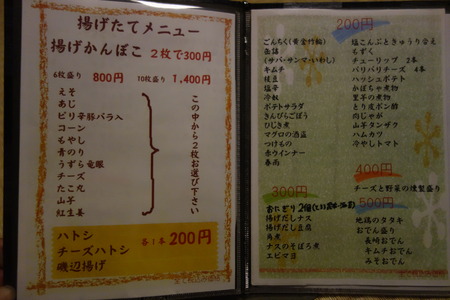 揚げたてメニュー
揚げかんぼこ 2枚で300円
6枚盛り 800円 10枚盛り 1,400円
えそ
あじ
ピリ辛豚バラ入
コーン
もやし
青のり
うずら竜眼
チーズ
たこ丸
山芋
紅生姜
この中から2枚お選び下さい
ハトシ
チーズハトシ
磯辺揚げ
各1本 200円
200円
ごんちく(黄金竹輪)
缶詰
(サバ・サンマ・いわし)
キムチ
枝豆
塩辛
冷奴
ポテトサラダ
きんぴらごぼう
ひじき煮
マグロの酒盗
つけもの
赤ウインナー
春雨
塩こんぶときゅうり合え
もずく
チューリップ 2本
パリパリチーズ 4本
ハッシュポテト
かぼちゃ煮物
里芋の煮物
とり皮ポン酢
肉じゃが
山芋タンザク
ハムカツ
冷やしトマト
400円
チーズと野菜の燻製盛り
300円
おにぎり2個
揚げだしナス
揚げだし豆腐
角煮
ナスのそぼろ煮
エビマヨ
500円
地鶏のタタキ
おでん盛り
長崎おでん
キムチおでん
みそおでん